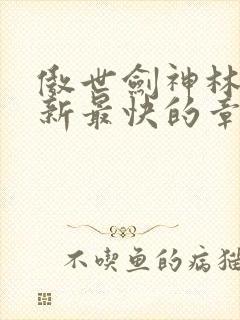 傲世劍神林
新最快的章
不喫鱼的病猫